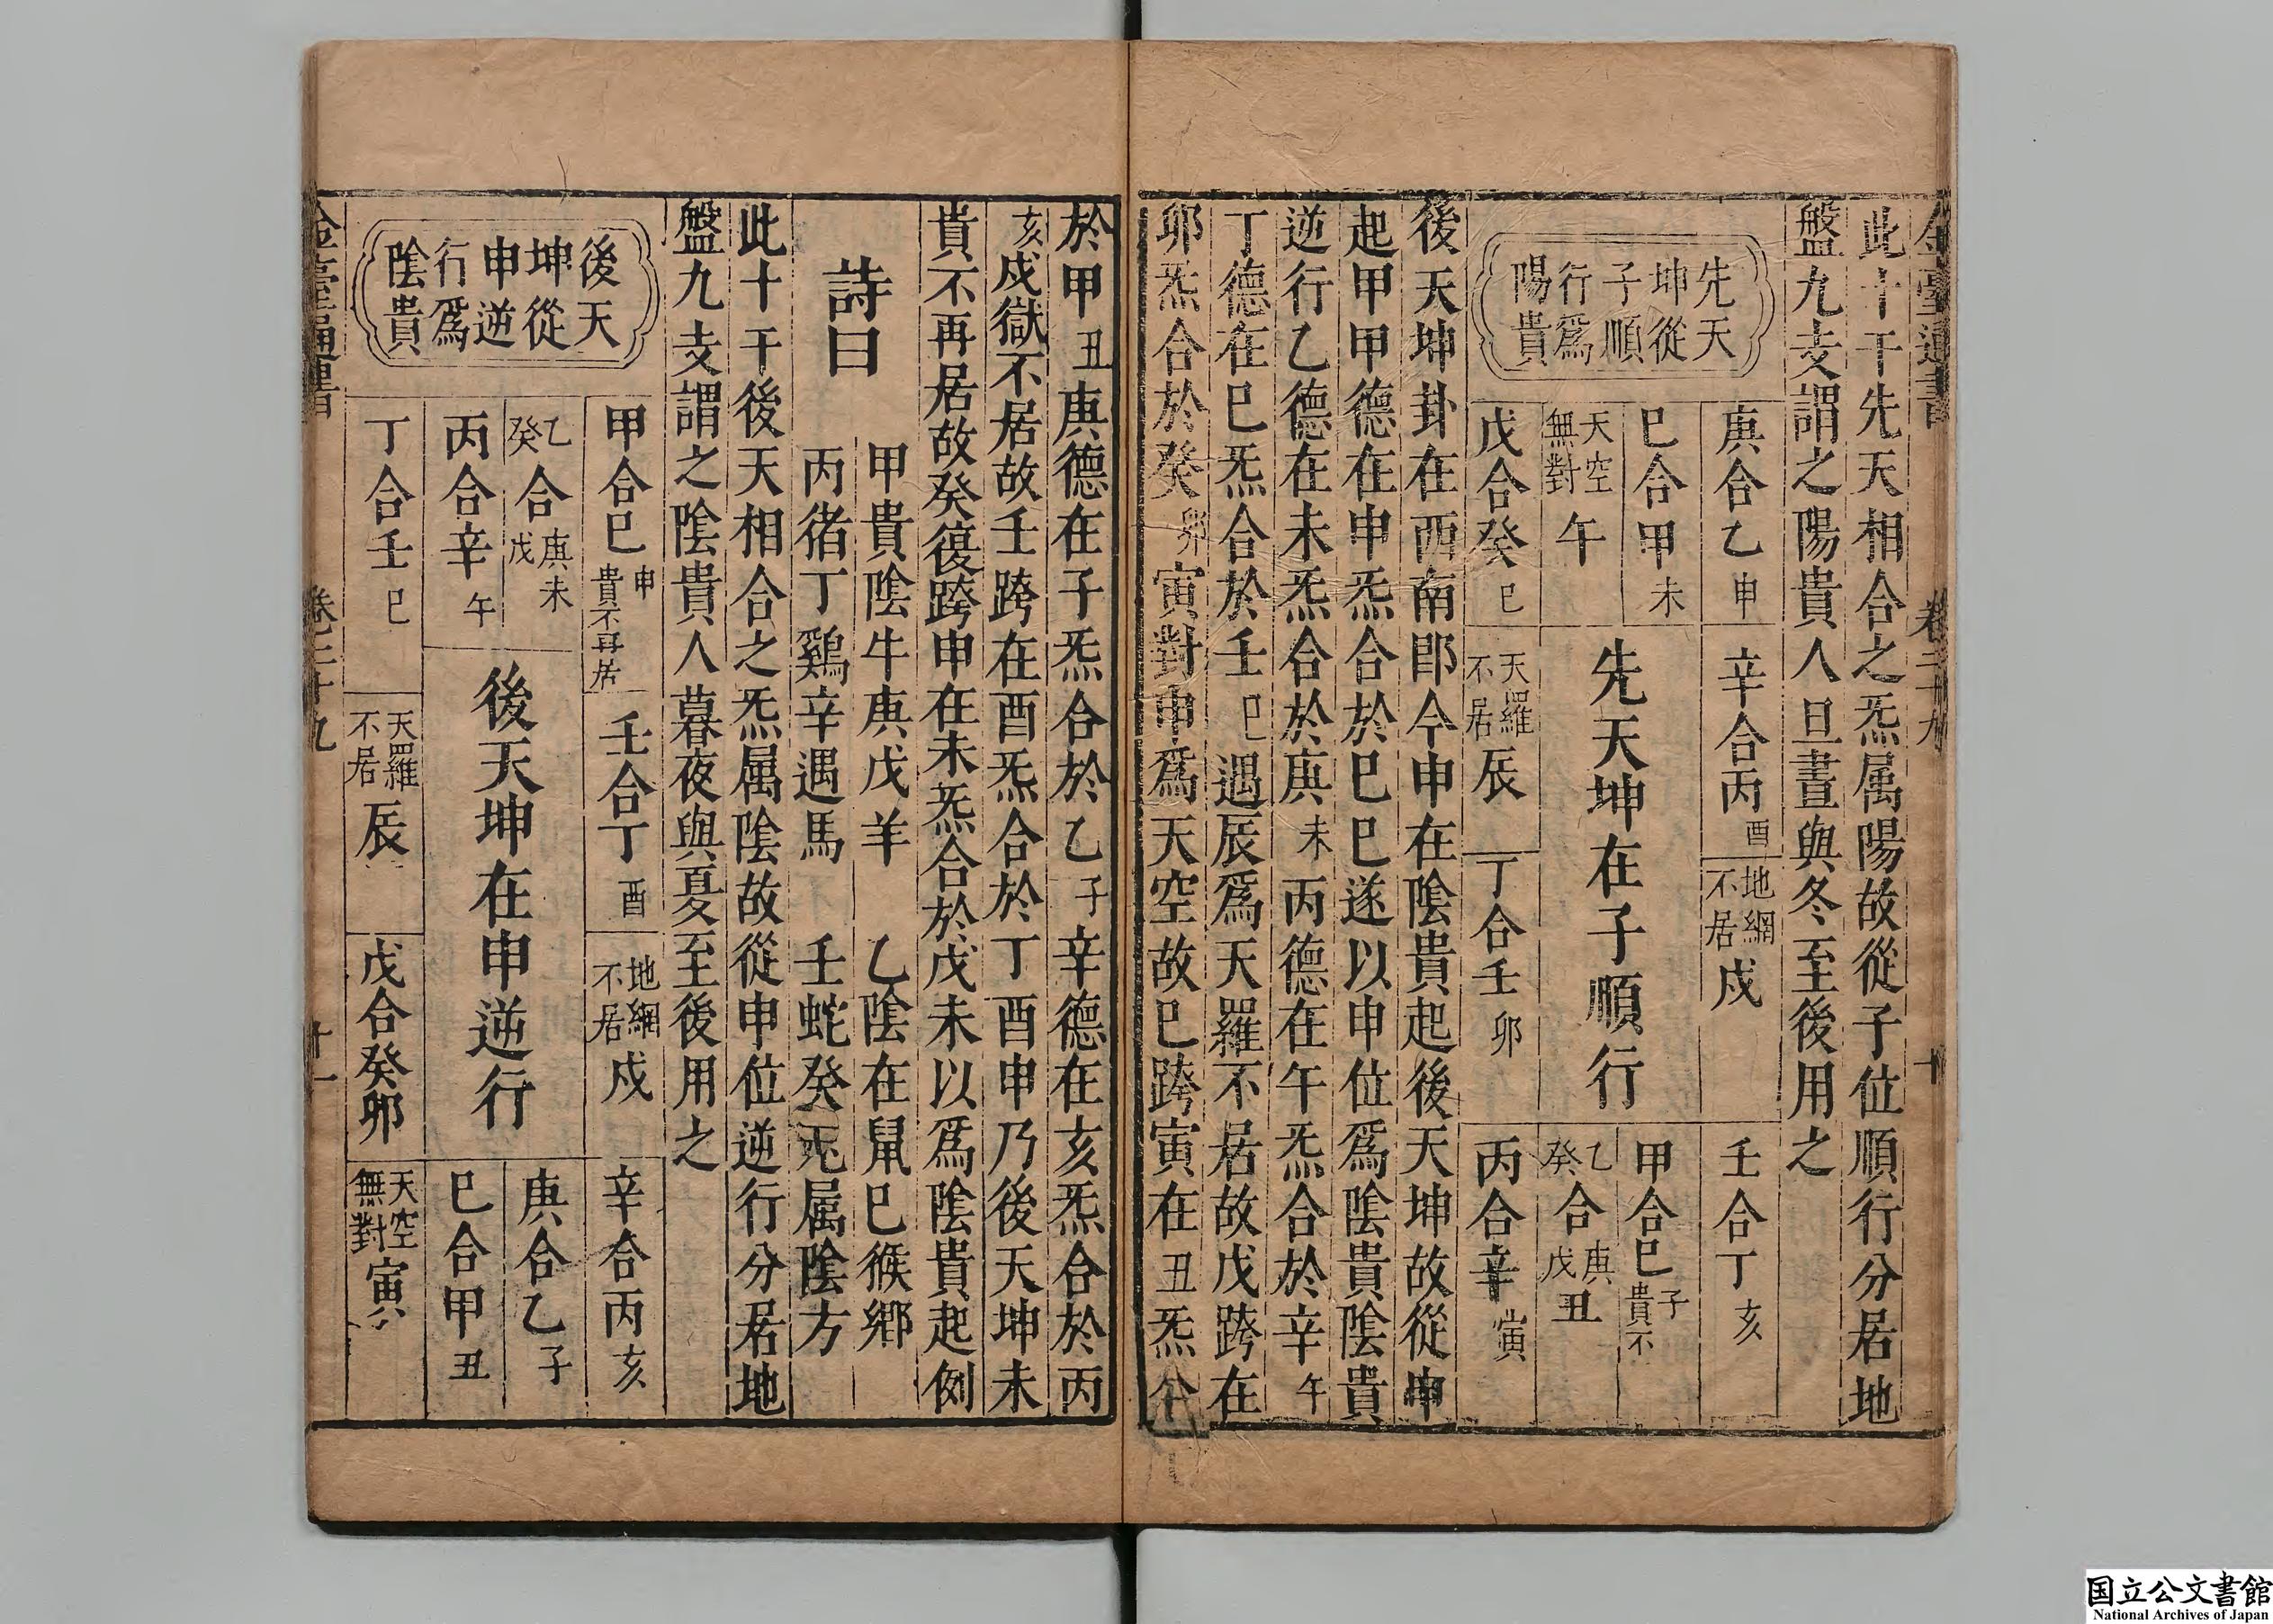 金臺通書 卷二十九 十
此十干先天相合之炁属陽故從子位順行分居地
盤九支謂之陽貴人旦晝與冬至後用之
先天
坤從
子順
行為
陽貴
庚合乙申
辛合丙酉
地網不居戍
壬合丁亥
巳合甲未
甲合巳子貴不
天空無對午
先天坤在子順行
乙癸合庚戊丑
戊合癸巳
天羅不居辰
丁合壬卯
丙合辛寅
後天坤卦在西南郎今申在陰貴起後天坤故從申
起甲甲德在申炁合於巳巳遂以申位爲陰貴陰貴
逆行乙德在未炁合於庚未丙德在午炁合於辛午
丁德在巳炁合於壬巳遇辰爲天羅不居故戊跨在
卯炁合於癸卯寅對申爲天空故巳跨寅在丑炁合
於甲丑庚德在子炁合於乙子辛德在亥炁合於丙
亥戍獄不居故壬跨在酉炁合於丁酉申乃後天坤未
貴不再居故癸復跨申在未炁合於戊未以爲陰貴起例
詩曰
甲貴陰牛庚戊羊 乙陰在鼠巳猴鄉
丙猪丁鷄辛遇馬 壬蛇癸兎属陰方
此十干後天相合之炁属陰故從申位逆行分居地
盤九支謂之陰貴人暮夜與夏至後用之
後天
坤從
申逆
行爲
陰貴
甲合巳申貴不再居
壬合丁酉
地網不居戍
辛合丙亥
乙癸合庚戊未
庚合乙子
丙合辛午
後天坤在申逆行
巳合甲丑
丁合壬巳
天羅不居辰
戊合癸卯
天空無對寅
金臺通書 卷二十九 十一
国立公文書館
National Archives of Japan